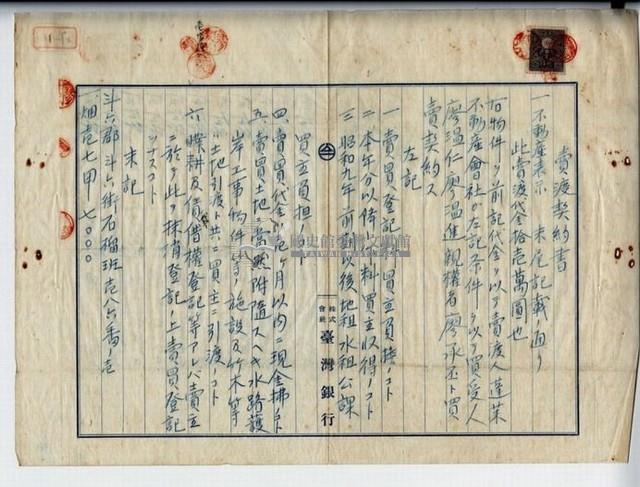 賣渡契約書
一 不動産表示 末尾記載ノ通リ
此賣渡代金拾壱萬圓也
右物件ヲ前記代金ヲ以テ賣渡人蓬莱
不動産會社カ左記条件ヲ以テ買受人
廖温仁廖温進親権者廖承丕ト買
賣契約ス
左記
一 賣買登記ハ買主負擔ノコト
二 本年分以降小料買主収得ノコト
三 昭和九年 前期以後地租水租公課
買主負担ノコト
四 賣買代金ハ壱ヶ月以内ニ現金拂ノコト
五 賣買土地ニ當然附隨スヘキ水路護
岸工事物件等ノ施設及竹木等
ハ土地引渡ト共ニ買主ニ引渡ノコト
六 贌耕及債権登記等アレバ賣主
ニ於テ此ヲ抹消登記ノ上賣買登記
ヲナスコト
末記
斗六郡斗六街石榴班壱八六番ノ壱
一畑壱七甲七〇〇〇
株式會社 臺灣銀行
歷史館 文獻館